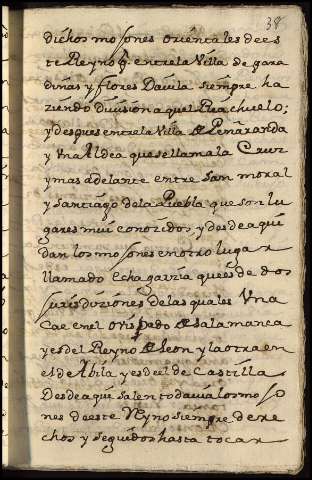 38
dichos mojones orientales de es
te Reyno q. entre la Villa de gara
diñas y flores Dauila siempre ha
ziendo diuision aquel Riachuelo;
y despues entre la Villa de Peñaranda
y Vna Aldea que se llama la Cruz
y mas adelante entre San moral
y Santiago de la Puebla que son lu
gares mui conozidos, y desde aqui
dan los mojones en otro lugar
llamado Echagarzia que es de dos
Jurisdiziones de las quales Vna
Cae en el Ovispado de Salamanca
y es del Reyno de Leon y la otra en
el de Abila y es de el de Castilla
Desde aqui salen todauia los mojo
nes de este Reyno siempre dere
chos y seguidos hasta tocar